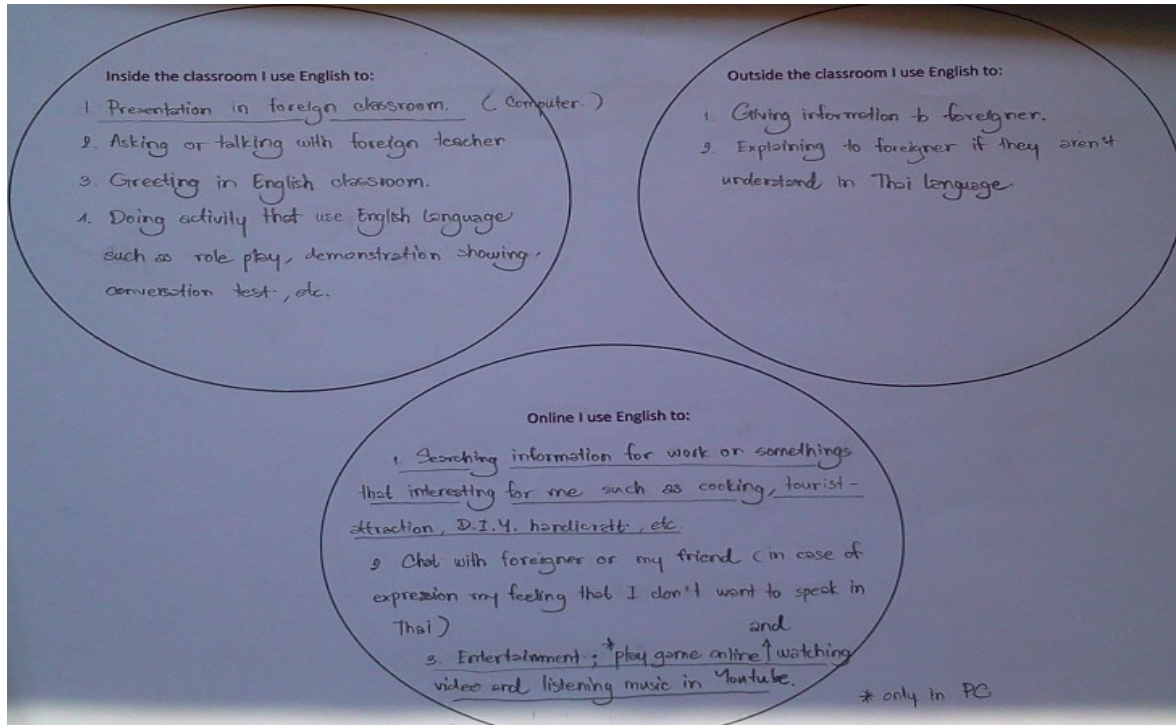 Inside the classroom I use English to:
1. Presentation in foreign classroom. (Computer.)
2. Asking or talking with foreign teacher
3. Greeting in English classroom.
4. Doing activity that use English Language
such as role play, demonstration showing,
conversation test, etc.
Outside the classroom I use English to:
1. Giving information to foreigner.
2. Explaining to foreigner if they aren't
understand in Thai language.
Online I use English to:
1. Searching information for work or somethings
that interesting for me such as cooking, tourist-
attraction, D.I.Y. handicraft, etc.
2 Chat with foreigner or my friend (in case of
expression my feeling that I don't want to speak in
Thai)
and
3. Entertainment; *play game online ↑ watching
video and listening music in Youtube.
* only in PC